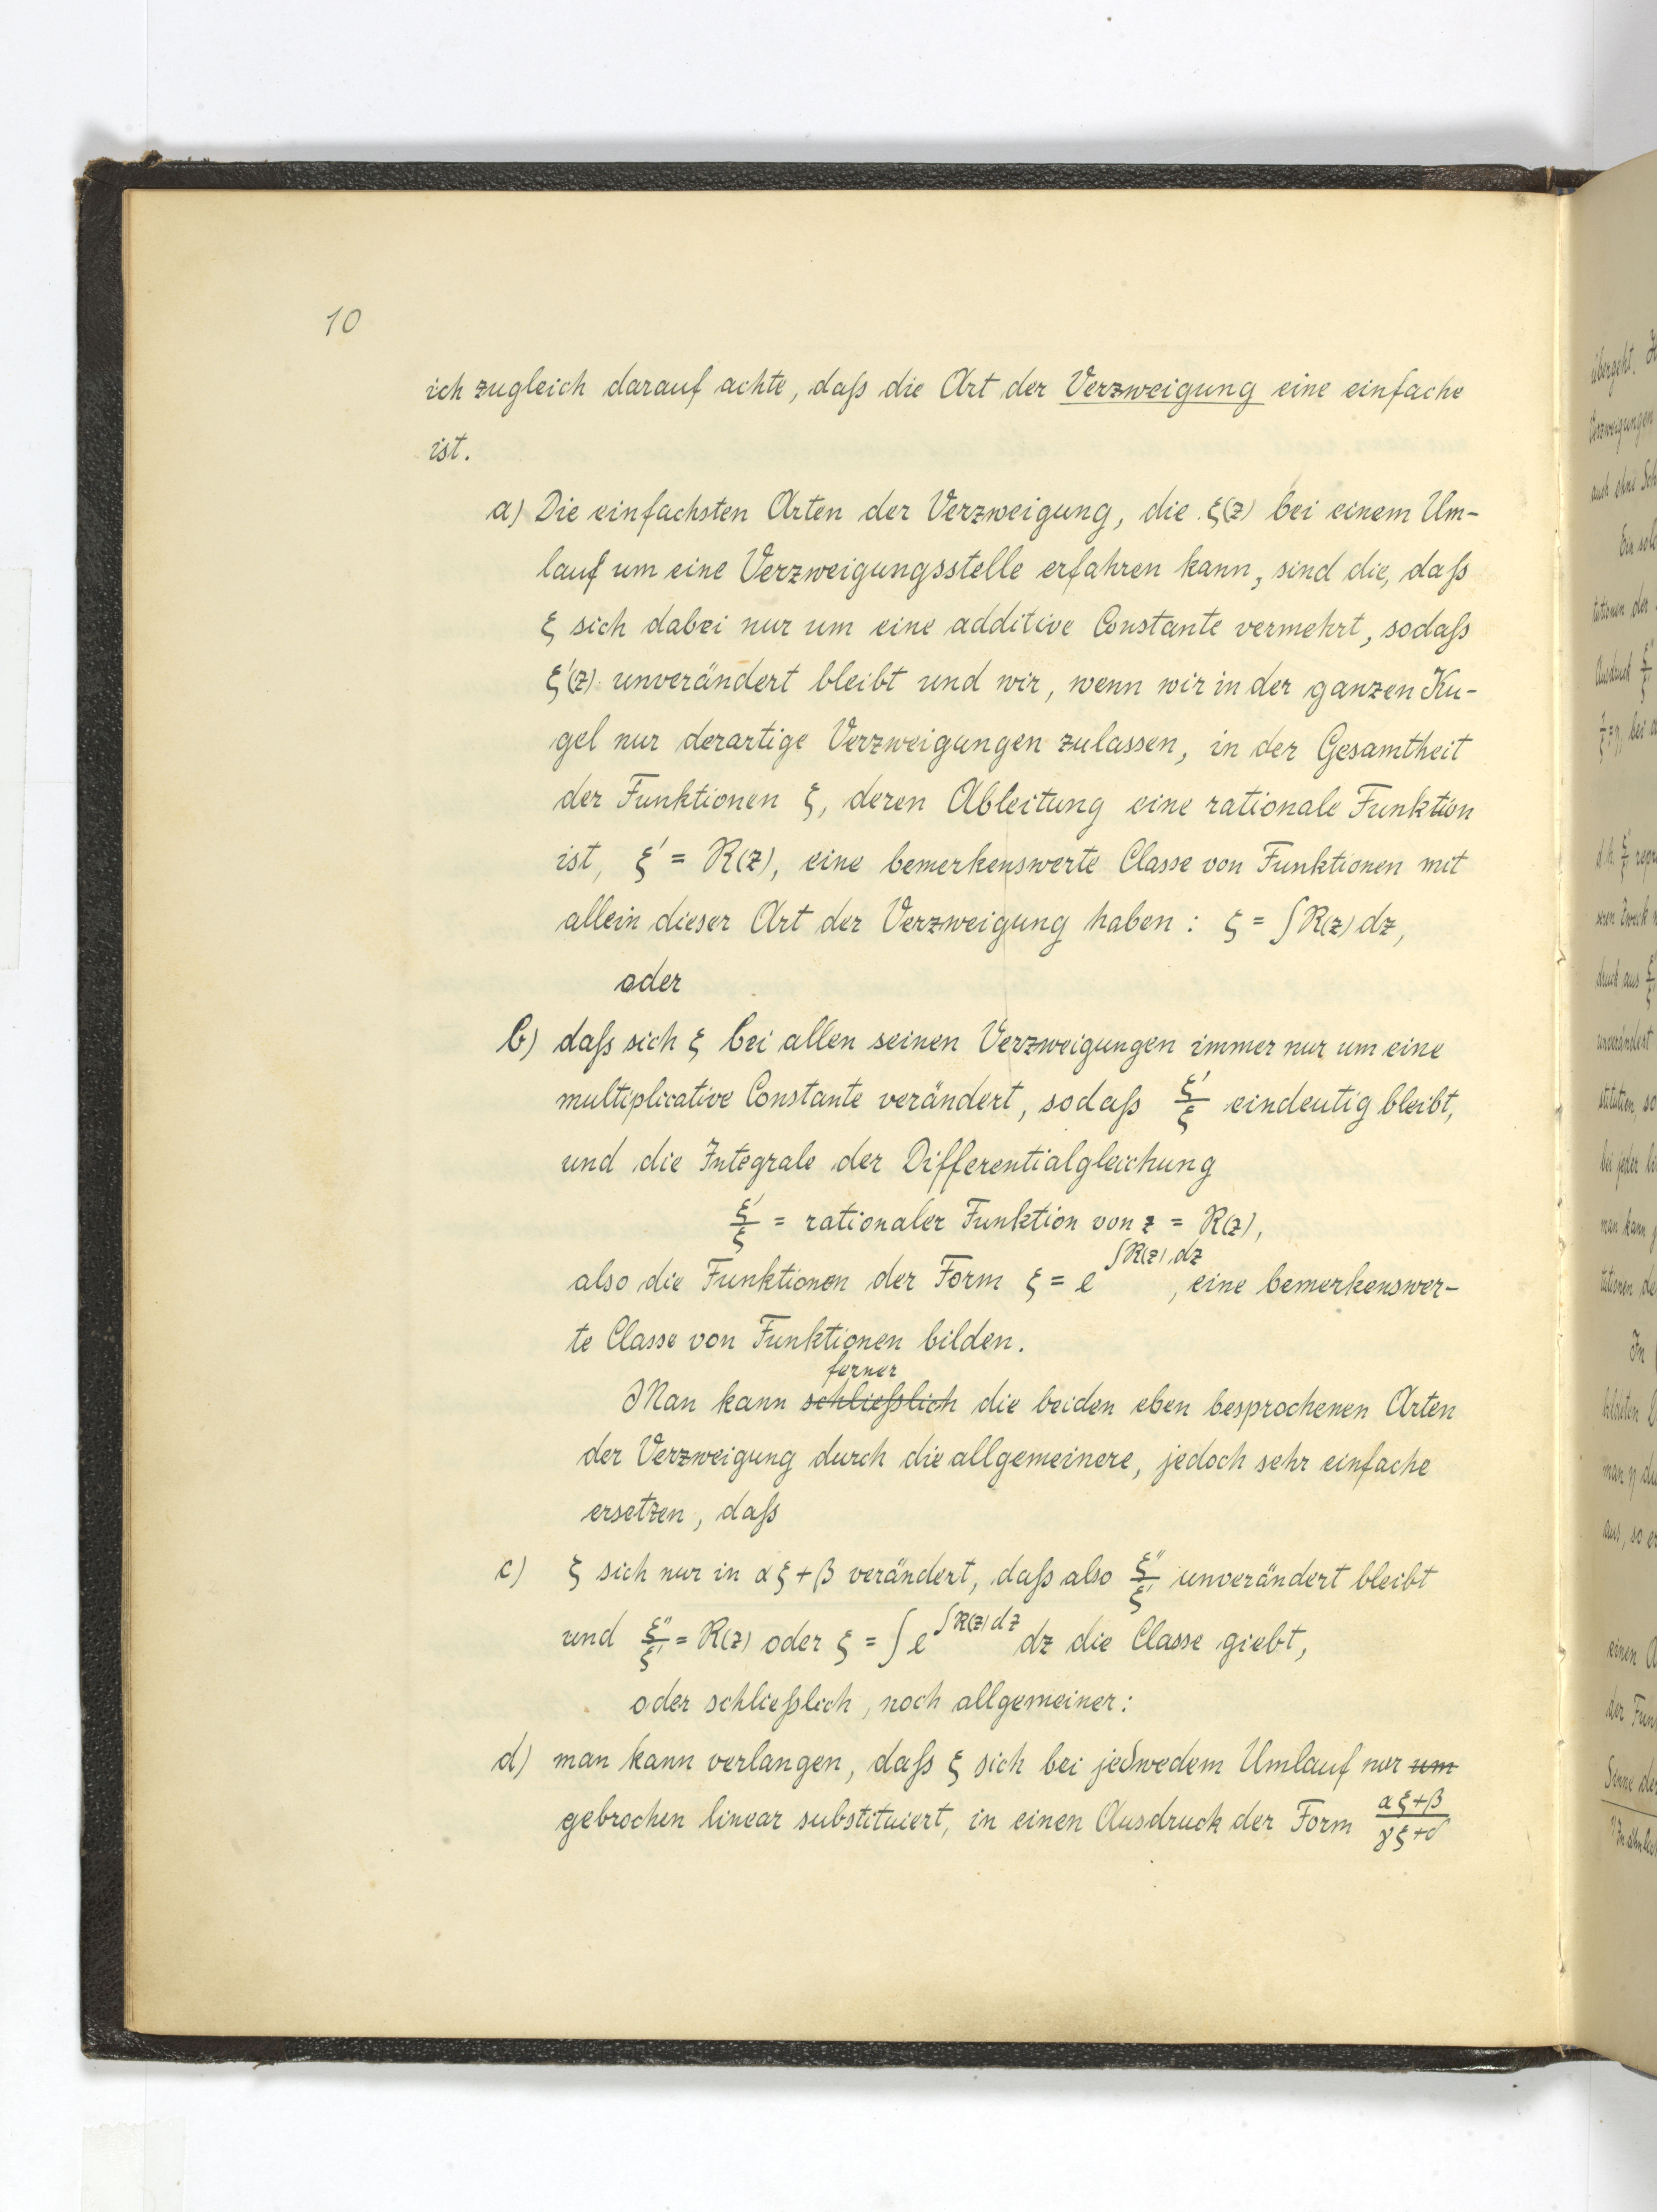 10
ich zugleich darauf achte, daß die Art der Verzweigung eine einfache
ist.
a) Die einfachsten Arten der Verzweigung, die ξ(z) bei einem Um-
lauf um eine Verzweigungsstelle erfahren kann, sind die, daß
ξ sich dabei nur um eine additive Constante vermehrt, sodaß
ξ'(z) unverändert bleibt und wir, wenn wir in der ganzen Ku-
gel nur derartige Verzweigungen zulassen, in der Gesamtheit
der Funktionen ξ, deren Ableitung eine rationale Funktion
ist, ξ' = R(z), eine bemerkenswerte Classe von Funktionen mit
allein dieser Art der Verzweigung haben: ξ = ∫R(z) dz,
oder
b) daß sich ξ bei allen seinen Verzweigungen immer nur um eine
multiplicative Constante verändert, sodaß ξ'/ξ eindeutig bleibt,
und die Integrale der Differentialgleichung
ξ'/ξ = rationaler Funktion von z = R(z),
also die Funktionen der Form ξ = e^{∫R(z) dz}, eine bemerkenswer-
te Classe von Funktionen bilden.
ferner
Man kann schließlich die beiden eben besprochenen Arten
der Verzweigung durch die allgemeinere, jedoch sehr einfache
ersetzen, daß
c) ξ sich nur in αξ+β verändert, daß also ξ''/ξ' unverändert bleibt
und ξ''/ξ' = R(z) oder ξ = ∫e^{∫R(z) dz} dz die Classe giebt,
oder schließlich, noch allgemeiner:
d) man kann verlangen, daß ξ sich bei jedwedem Umlauf nur um
gebrochen linear substituiert, in einen Ausdruck der Form (αξ+β)/(γξ+δ)